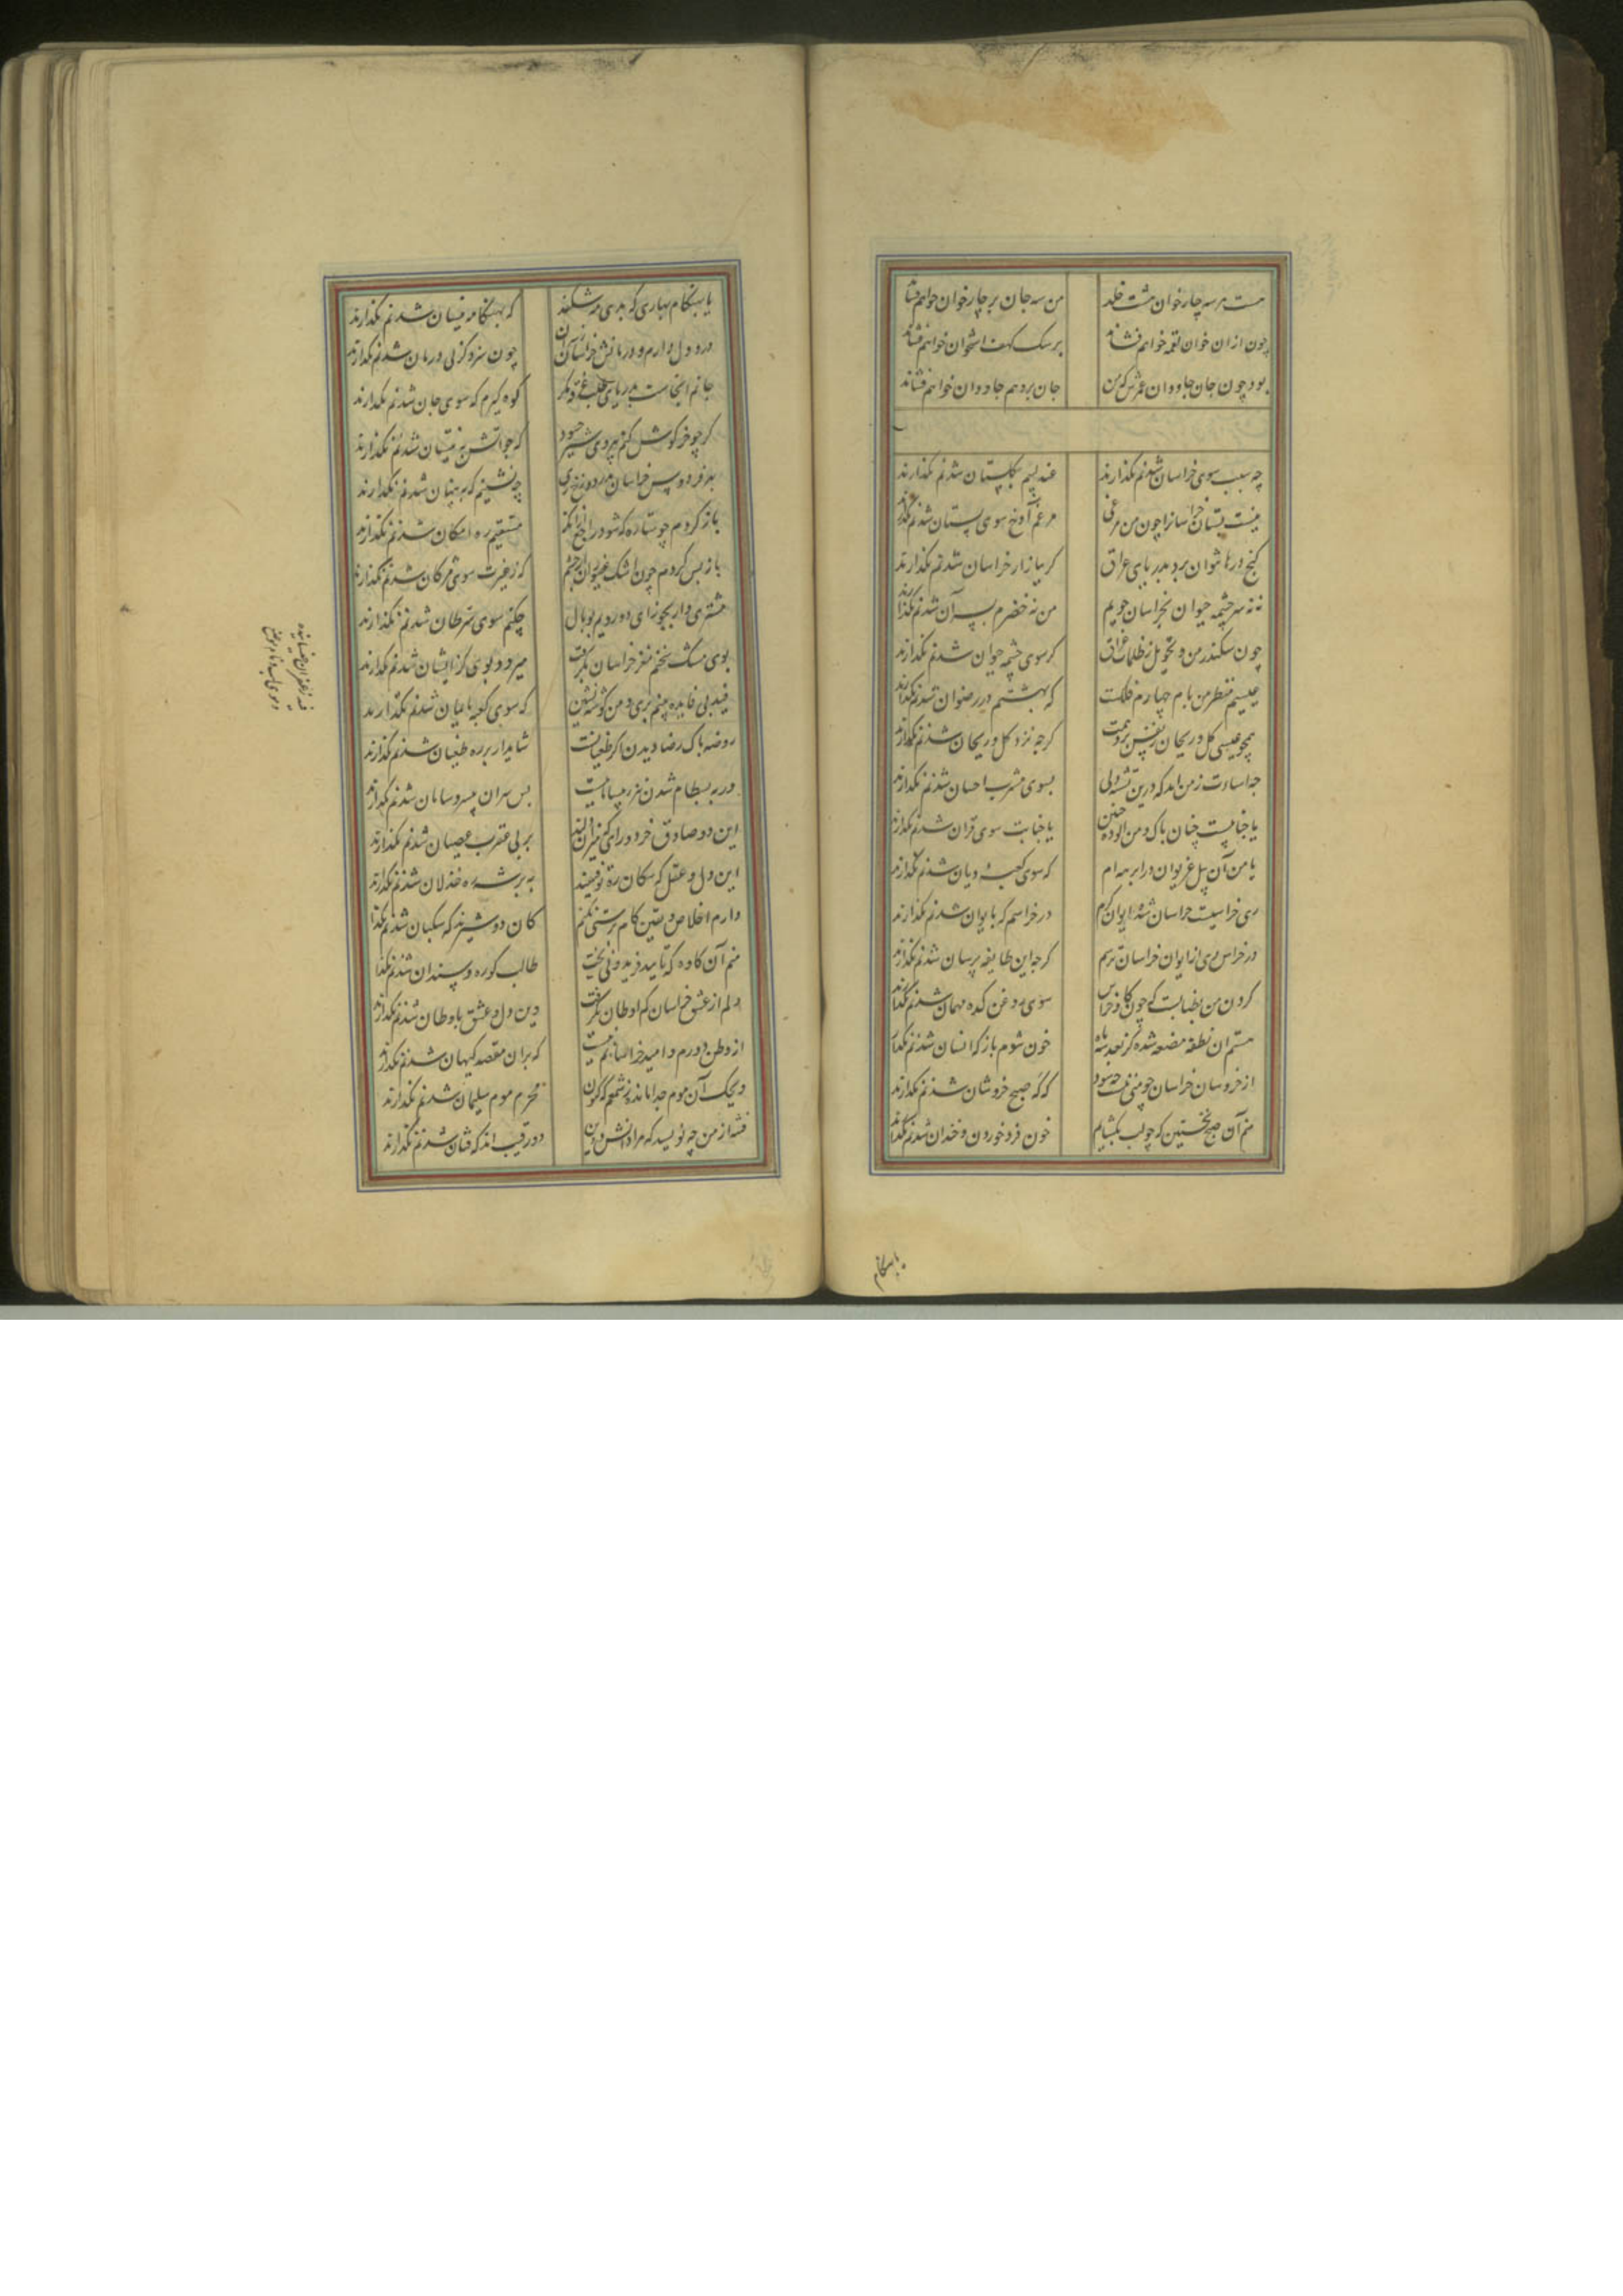 هست هر سه چار خوان هشت خلد
من سه جان بر چار خوان خواهم فشاند
چون ازان خوان لقمه خواهم فشاند
بر سک کهف استخوان خواهم فشاند
بود چون جان جاودان عمرش که من
جان برو هم جاودان خواهم فشاند
چه سبب سوی خراسان شدنم نگذارند
عندلیبم بگلستان شدنم نگذارند
نیست بستان خراسانرا چون من مرغی
مرغم آوخ سوی بستان شدنم نگذارند
گنج درها نتوان برد ببازار عراق
گر ببازار خراسان شدنم نگذارند
نه نه سرچشمه حیوان بخراسان جویم
من نه خضرم بسر آن شدنم نگذارند
چون سکندر من و تحویل بظلمات عراق
که سوی چشمه حیوان شدنم نگذارند
عیسیم منظر من بام چهارم فلکست
که بهشتم در رضوان شدنم نگذارند
همچو عیسی گل و ریحان ز نفس بر دمدت
گرچه نزد گل و ریحان شدنم نگذارند
چه اساءت ز من آمد که درین تشنه دلی
بسوی مشرب احسان شدنم نگذارند
یا جنابیست چنان پاک و من آلوده چنین
با جنابت سوی قرآن شدنم نگذارند
یا من آن پیل غریوان در ابرهه‌ام
که سوی کعبه دیان شدنم نگذارند
ری خراسیست خراسان شده ایوان کرم
در خراسم که بایوان شدنم نگذارند
در خراس ری از ایوان خراسان ترسم
گرچه این طایفه پرسان شدنم نگذارند
گردن من بطنابست که چون گاو خراس
سوی روغن کده مهمان شدنم نگذارند
هستم آن نطفه مضغه شده کز بعد سه ماه
خون شوم باز که انسان شدنم نگذارند
از خروسان خراسان چو منی نیست چه سود
که گه صبح خروشان شدنم نگذارند
منم آن صبح نخستین که چو لب بگشایم
خون فرو خوردن و خندان شدنم نگذارند
یا بهنگام
یا بهنگام بهاری که بدی مه شکند
که بهنگامه نیسان شدنم نگذارند
درد دل دارم و درمانش خراسان
چون سزد کز پی درمان شدنم نگذارند
جانم آنجاست بدریای طلب غرقه مگر
کوه گیرم که سوی جان شدنم نگذارند
گر چو خرگوش کنم پیروی شیر چه سود
که چو آتش به نیستان شدنم نگذارند
بهر فردوس خراسان بدر دوزخ ری
چه نشینم که به پنهان شدنم نگذارند
باز گردم چو ستاره که شود راجع ازانک
مستقیم ره امکان شدنم نگذارند
باز پس گردم چون اشک غیوران از چشم
که ز غیرت سوی مژگان شدنم نگذارند
مشتری وار بجوزای دورویم بوبال
چکنم سوی سرطان شدنم نگذارند
بوی مشک سخنم مغز خراسان بگرفت
میرود بوی گر ایشان شدنم نگذارند
فید بی فایده بینم ری و من گوشه نشین
که سوی کعبه با ایشان شدنم نگذارند
روضه پاک رضا دیدن اگر طغیانست
شاید ار بر ره طغیان شدنم نگذارند
ور به بسطام شدن نیز ز بیسامانیست
پس سران بی سر و سامان شدنم نگذارند
این دو صادق خرد و رای که میزان دلند
بر پی عقرب عصیان شدنم نگذارند
این دل و عقل که پیکان ره توفیقند
بر سر شه ره خذلان شدنم نگذارند
دارم اخلاص و یقین کام پرستی نکنم
کان دو شیرند که سگبان شدنم نگذارند
منم آن کاوه که تایید فریدونی بخت
طالب کوره و سندان شدنم نگذارند
دلم از عشق خراسان کم اوطان بگرفت
وین دل و عشق باوطان شدنم نگذارند
از وطن دورم و امید خراسانم نیست
که بران مقصد کیهان شدنم نگذارند
ویحک آن موم جدا مانده ز شهدم که کنون
محرم موم سلیمان شدنم نگذارند
فتنه از من چه نویسد که مرا دانش و دین
دو رقیب اند که فتان شدنم نگذارند